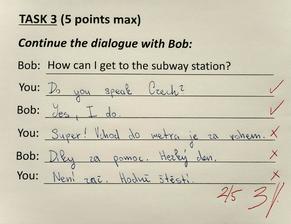 TASK 3 (5 points max)
Continue the dialogue with Bob:
Bob: How can I get to the subway station?
You: Do you speak Czech?
Bob: Yes, I do.
You: Super! Vchod do metra je za rohem.
Bob: Díky za pomoc. Hezký den.
You: Není zač. Hodně štěstí.
2/5